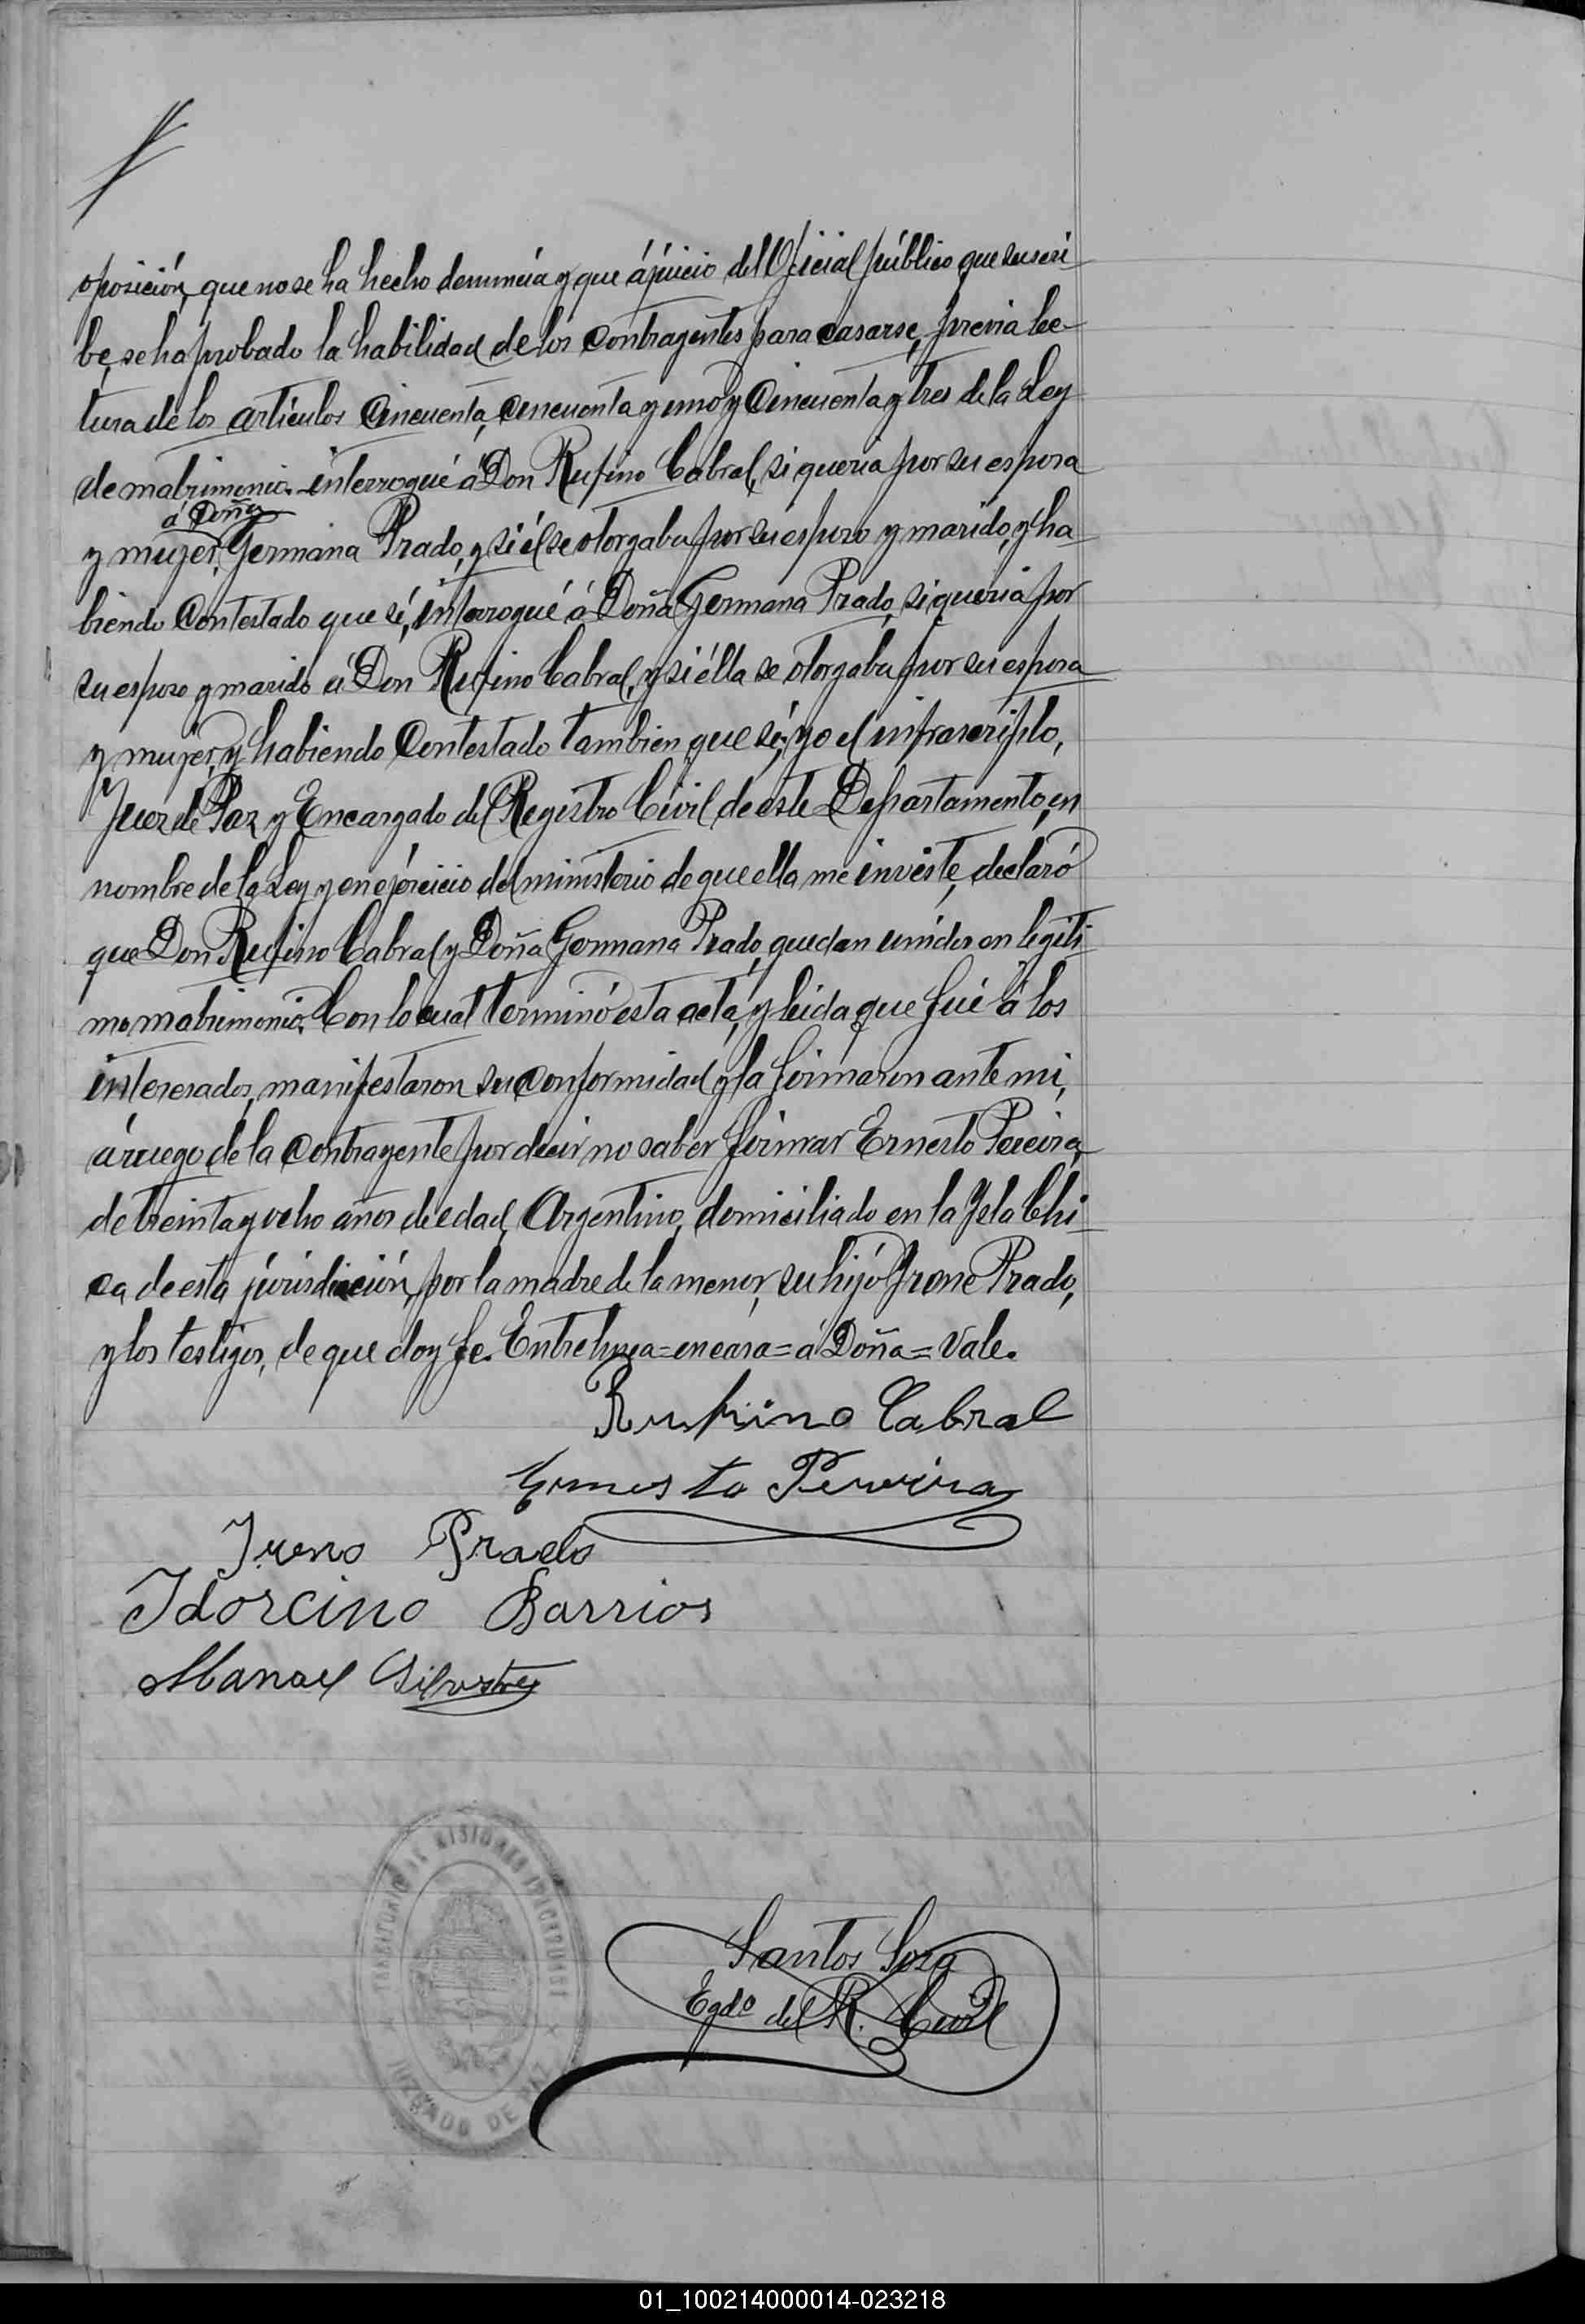 oposición, que no se ha hecho denuncia y que á juicio del Oficial público que suscri-
be, se ha probado la habilidad de los contrayentes para casarse, previa lec-
tura de los artículos cincuenta, cincuenta y uno y cincuenta y tres de la Ley
de matrimonio. interrogué á Don Rufino Cabral, si queria por su esposa
á Doña
y mujer, Germana Prado, y si él se otorgaba por su esposo y marido, y ha-
biendo contestado que sí, interrogué á Doña Germana Prado, si queria por
su esposo y marido á Don Rufino Cabral, y si élla se otorgaba por su esposa
y mujer, y habiendo contestado tambien que sí; yo el infrascripto,
Juez de Paz y Encargado del Registro Civil de este Departamento, en
nombre de la Ley y en ejercicio del ministerio de que ella me inviste, declaró
que Don Rufino Cabral y Doña Germana Prado, quedan unidos en legíti-
mo matrimonio. Con lo cual terminó esta acta, y leida que fué á los
interesados, manifestaron su conformidad y la firmaron ante mi,
á ruego de la contrayente por decir no saber firmar Ernesto Pereira,
de treinta y ocho años de edad, Argentino, domiciliado en la Isla Chi-
ca de esta jurisdicción, por la madre de la menor, su hijo Irene Prado,
y los testigos, de que doy fe. Entrelinea = = á Doña = Vale.
Rufino Cabral
Ernesto Pereira
Ireno Prado
Idorcino Barrios
Manoel Silvestre
TERRITORIO DE MISIONES
JUZGADO DE PAZ
Santos Sosa
Egdo del R. Civil
01_100214000014-023218